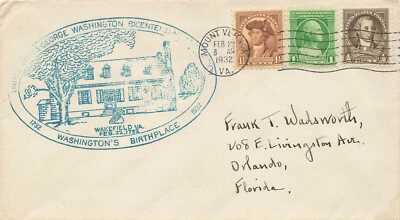 GEORGE WASHINGTON BICENTEN
1732
1932
WAKEFIELD, VA.
FEB. 22, 1732
WASHINGTON'S BIRTHPLACE
MOUNT VE
FEB 22
8 AM
1932
VA.
Frank T. Wadsworth,
408 E. Livingston Av.
Orlando,
Florida.